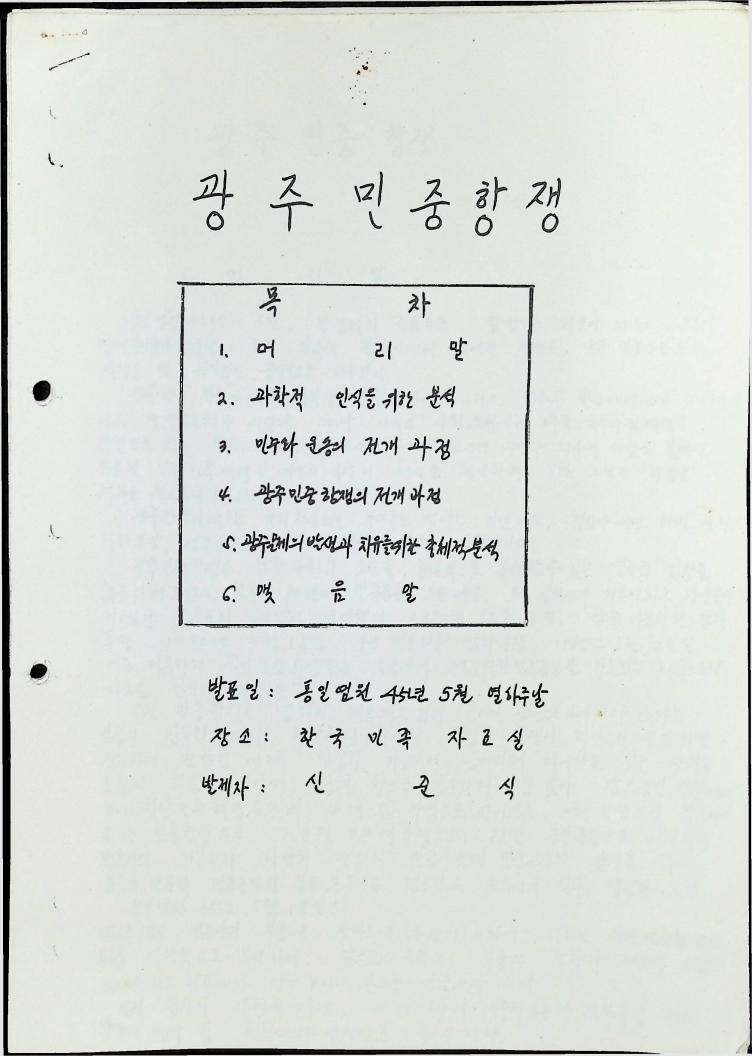 광주민중항쟁
목 차
1. 머 리 말
2. 과학적 인식을 위한 분석
3. 민주화 운동의 전개 과정
4. 광주민중항쟁의 전개과정
5. 광주문제의 발생과 치유를위한 총체적분석
6. 맺 음 말
발표일 : 통일염원 45년 5월 열사주날
장소 : 한국민족 자료실
발제자 : 신 준 식